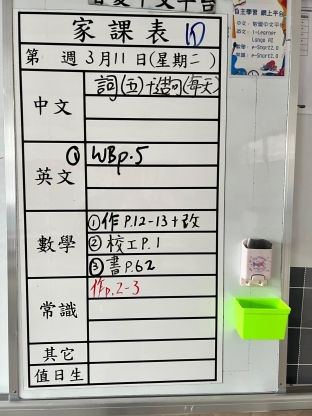 智愛中文平台
家課表 1D
第 週 3月11日(星期二)
中文
詞(五)+造句(每天)
英文
① WBp.5
數學
①作 P.12-13+改
②校工P.1
③書P.62
常識
作p.2-3
其它
值日生
自主學習 網上平台
中文: 智愛中文平台
英文: i-Learner
Lango AI
數學: e-Smart2.0
常識: e-Smart2.0